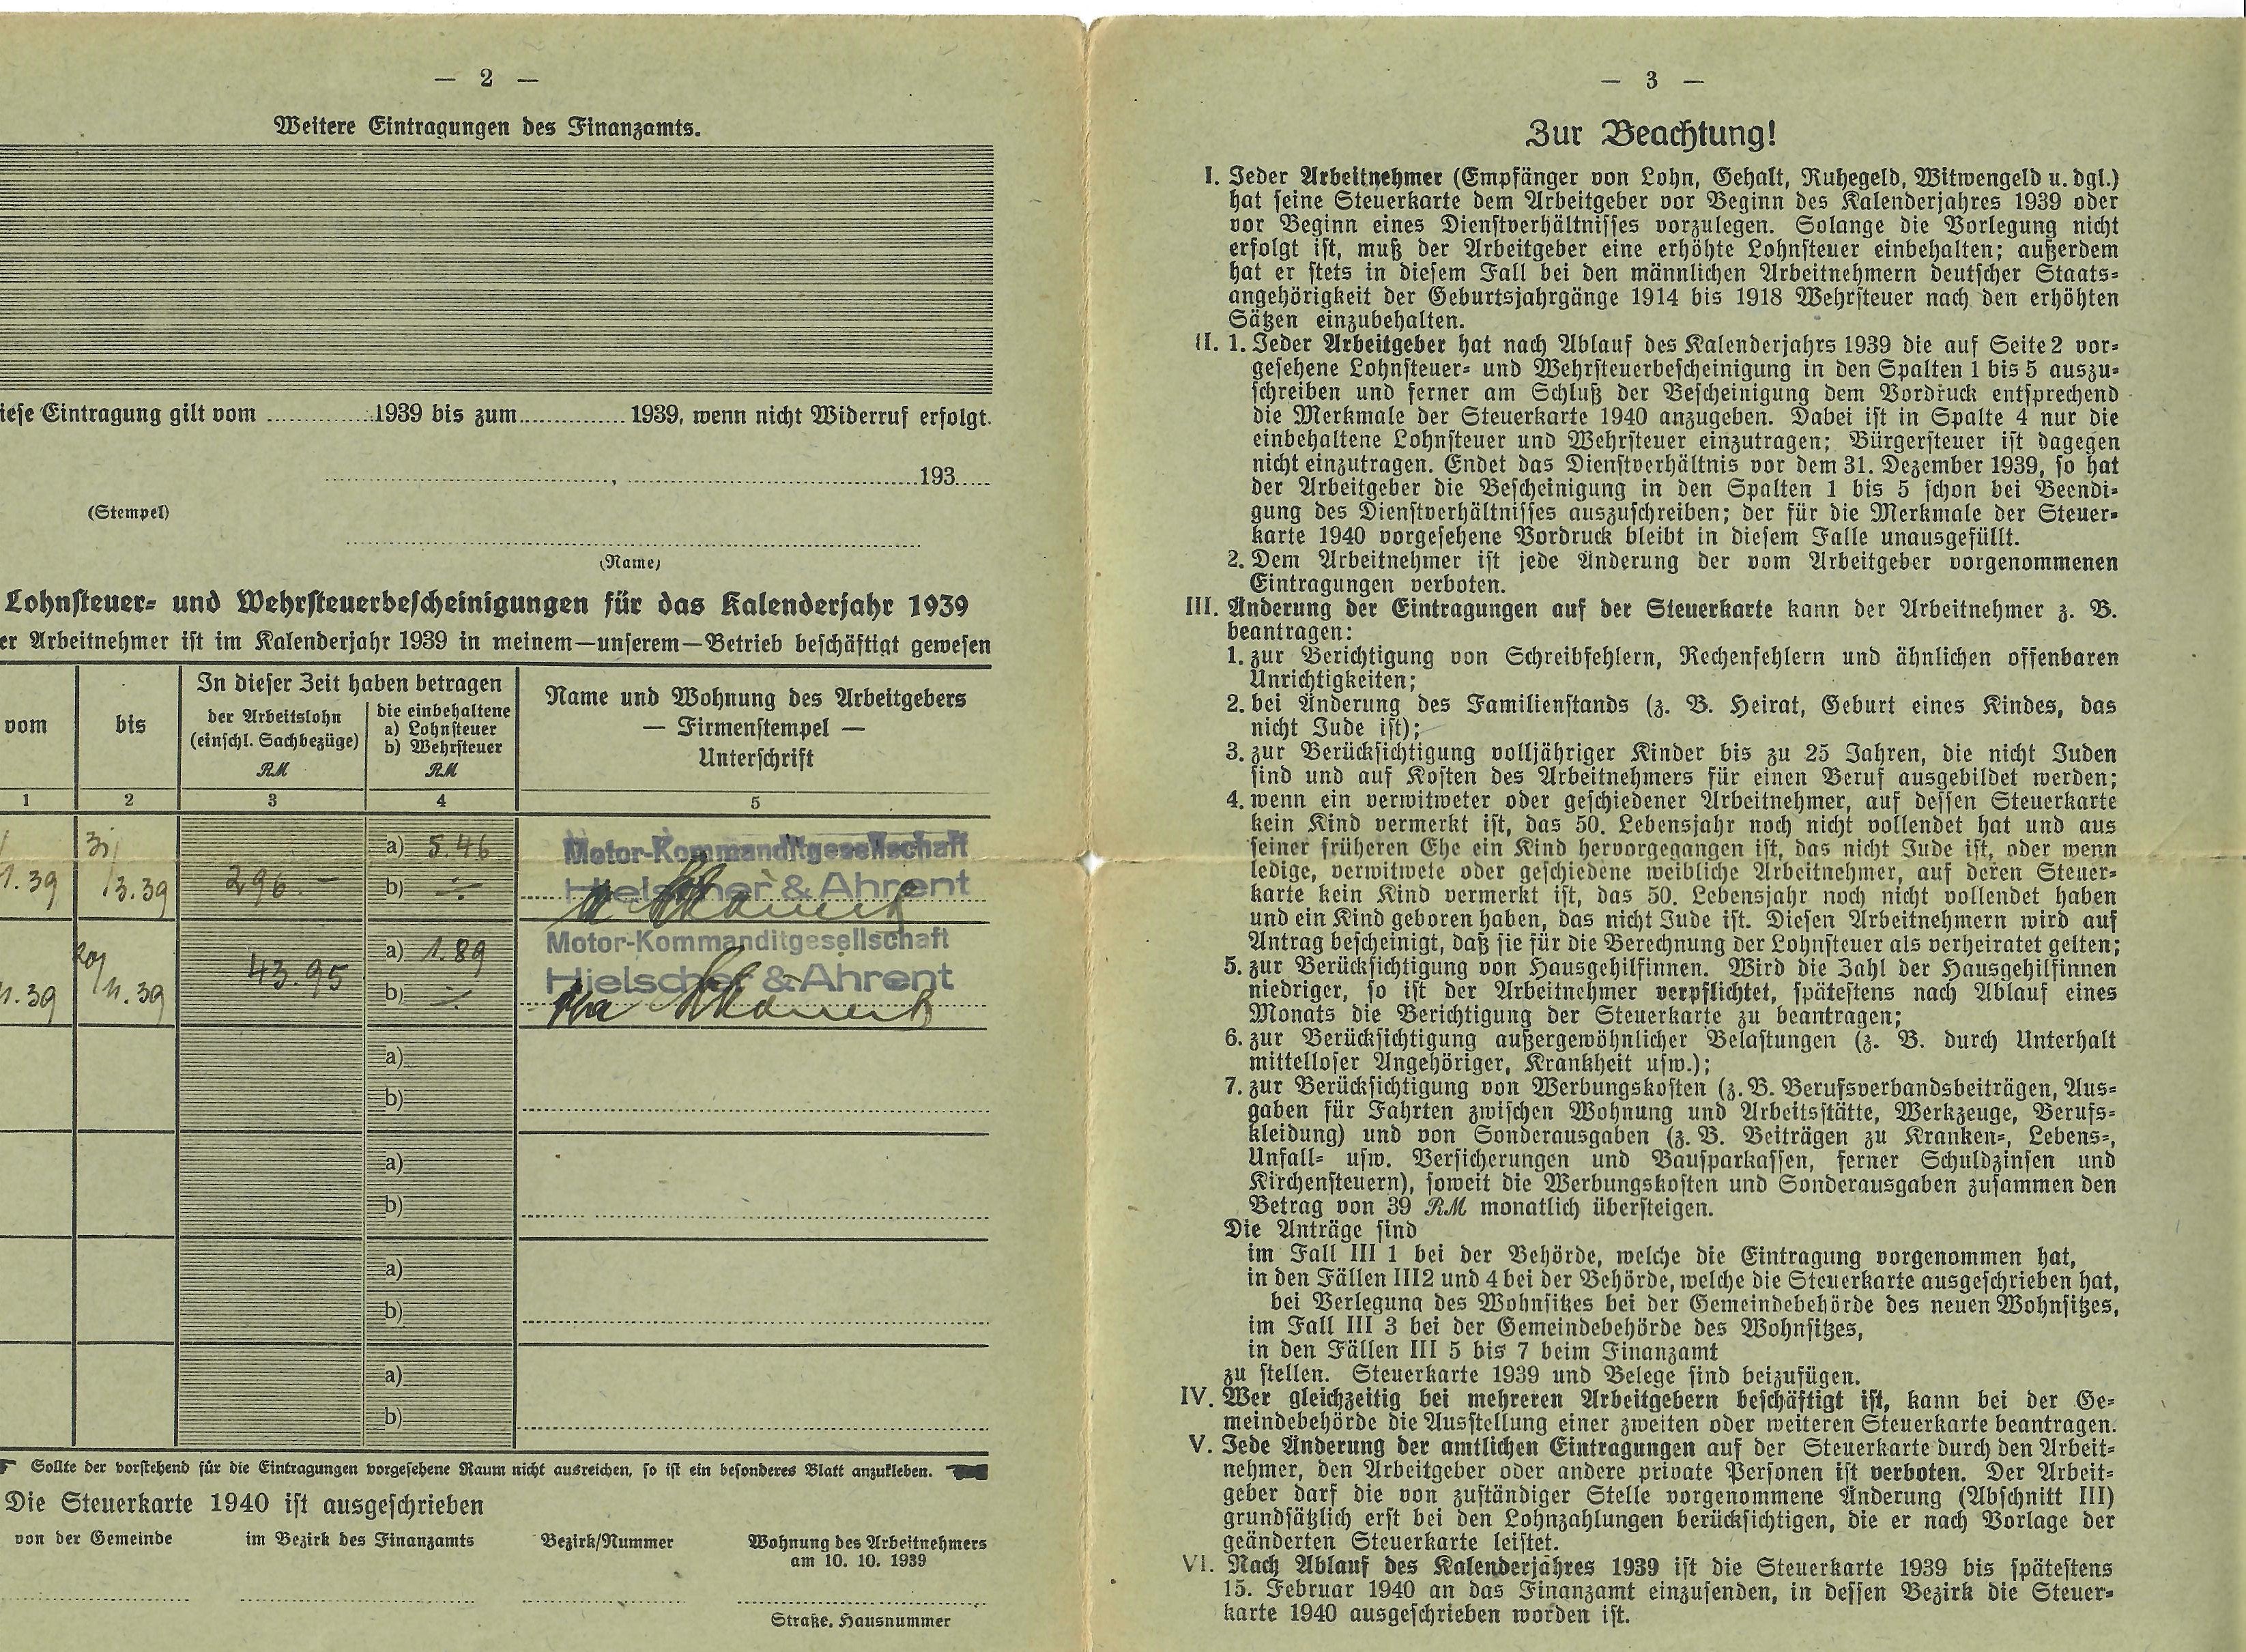 — 2 —
Weitere Eintragungen des Finanzamts.
iese Eintragung gilt vom ..............1939 bis zum............... 1939, wenn nicht Widerruf erfolgt.
, 193
(Stempel)
(Name)
Lohnsteuer- und Wehrsteuerbescheinigungen für das Kalenderjahr 1939
er Arbeitnehmer ist im Kalenderjahr 1939 in meinem—unserem—Betrieb beschäftigt gewesen
vom
bis
In dieser Zeit haben betragen
der Arbeitslohn
(einschl. Sachbezüge)
RM
die einbehaltene
a) Lohnsteuer
b) Wehrsteuer
RM
Name und Wohnung des Arbeitgebers
— Firmenstempel —
Unterschrift
1 2 3 4 5
1.39
31/3.39
296.—
a) 5.46
b) ÷
Motor-Kommanditgesellschaft
Hielscher & Ahrent
1.39
/11.39
43.95
a) 1.89
b) ÷
Motor-Kommanditgesellschaft
Hielscher & Ahrent
a)
b)
a)
b)
a)
b)
a)
b)
Sollte der vorstehend für die Eintragungen vorgesehene Raum nicht ausreichen, so ist ein besonderes Blatt anzukleben.
Die Steuerkarte 1940 ist ausgeschrieben
von der Gemeinde
im Bezirk des Finanzamts
Bezirk/Nummer
Wohnung des Arbeitnehmers
am 10. 10. 1939
Straße, Hausnummer
— 3 —
Zur Beachtung!
I. Jeder Arbeitnehmer (Empfänger von Lohn, Gehalt, Ruhegeld, Witwengeld u. dgl.)
hat seine Steuerkarte dem Arbeitgeber vor Beginn des Kalenderjahres 1939 oder
vor Beginn eines Dienstverhältnisses vorzulegen. Solange die Vorlegung nicht
erfolgt ist, muß der Arbeitgeber eine erhöhte Lohnsteuer einbehalten; außerdem
hat er stets in diesem Fall bei den männlichen Arbeitnehmern deutscher Staats-
angehörigkeit der Geburtsjahrgänge 1914 bis 1918 Wehrsteuer nach den erhöhten
Sätzen einzubehalten.
II. 1. Jeder Arbeitgeber hat nach Ablauf des Kalenderjahrs 1939 die auf Seite 2 vor-
gesehene Lohnsteuer- und Wehrsteuerbescheinigung in den Spalten 1 bis 5 auszu-
schreiben und ferner am Schluß der Bescheinigung dem Vordruck entsprechend
die Merkmale der Steuerkarte 1940 anzugeben. Dabei ist in Spalte 4 nur die
einbehaltene Lohnsteuer und Wehrsteuer einzutragen; Bürgersteuer ist dagegen
nicht einzutragen. Endet das Dienstverhältnis vor dem 31. Dezember 1939, so hat
der Arbeitgeber die Bescheinigung in den Spalten 1 bis 5 schon bei Beendi-
gung des Dienstverhältnisses auszuschreiben; der für die Merkmale der Steuer-
karte 1940 vorgesehene Vordruck bleibt in diesem Falle unausgefüllt.
2. Dem Arbeitnehmer ist jede Änderung der vom Arbeitgeber vorgenommenen
Eintragungen verboten.
III. Änderung der Eintragungen auf der Steuerkarte kann der Arbeitnehmer z. B.
beantragen:
1. zur Berichtigung von Schreibfehlern, Rechenfehlern und ähnlichen offenbaren
Unrichtigkeiten;
2. bei Änderung des Familienstands (z. B. Heirat, Geburt eines Kindes, das
nicht Jude ist);
3. zur Berücksichtigung volljähriger Kinder bis zu 25 Jahren, die nicht Juden
sind und auf Kosten des Arbeitnehmers für einen Beruf ausgebildet werden;
4. wenn ein verwitweter oder geschiedener Arbeitnehmer, auf dessen Steuerkarte
kein Kind vermerkt ist, das 50. Lebensjahr noch nicht vollendet hat und aus
seiner früheren Ehe ein Kind hervorgegangen ist, das nicht Jude ist, oder wenn
ledige, verwitwete oder geschiedene weibliche Arbeitnehmer, auf deren Steuer-
karte kein Kind vermerkt ist, das 50. Lebensjahr noch nicht vollendet haben
und ein Kind geboren haben, das nicht Jude ist. Diesen Arbeitnehmern wird auf
Antrag bescheinigt, daß sie für die Berechnung der Lohnsteuer als verheiratet gelten;
5. zur Berücksichtigung von Hausgehilfinnen. Wird die Zahl der Hausgehilfinnen
niedriger, so ist der Arbeitnehmer verpflichtet, spätestens nach Ablauf eines
Monats die Berichtigung der Steuerkarte zu beantragen;
6. zur Berücksichtigung außergewöhnlicher Belastungen (z. B. durch Unterhalt
mittelloser Angehöriger, Krankheit usw.);
7. zur Berücksichtigung von Werbungskosten (z. B. Berufsverbandsbeiträgen, Aus-
gaben für Fahrten zwischen Wohnung und Arbeitsstätte, Werkzeuge, Berufs-
kleidung) und von Sonderausgaben (z. B. Beiträgen zu Kranken-, Lebens-,
Unfall- usw. Versicherungen und Bausparkassen, ferner Schuldzinsen und
Kirchensteuern), soweit die Werbungskosten und Sonderausgaben zusammen den
Betrag von 39 RM monatlich übersteigen.
Die Anträge sind
im Fall III 1 bei der Behörde, welche die Eintragung vorgenommen hat,
in den Fällen III2 und 4 bei der Behörde, welche die Steuerkarte ausgeschrieben hat,
bei Verlegung des Wohnsitzes bei der Gemeindebehörde des neuen Wohnsitzes,
im Fall III 3 bei der Gemeindebehörde des Wohnsitzes,
in den Fällen III 5 bis 7 beim Finanzamt
zu stellen. Steuerkarte 1939 und Belege sind beizufügen.
IV. Wer gleichzeitig bei mehreren Arbeitgebern beschäftigt ist, kann bei der Ge-
meindebehörde die Ausstellung einer zweiten oder weiteren Steuerkarte beantragen.
V. Jede Änderung der amtlichen Eintragungen auf der Steuerkarte durch den Arbeit-
nehmer, den Arbeitgeber oder andere private Personen ist verboten. Der Arbeit-
geber darf die von zuständiger Stelle vorgenommene Änderung (Abschnitt III)
grundsätzlich erst bei den Lohnzahlungen berücksichtigen, die er nach Vorlage der
geänderten Steuerkarte leistet.
VI. Nach Ablauf des Kalenderjahres 1939 ist die Steuerkarte 1939 bis spätestens
15. Februar 1940 an das Finanzamt einzusenden, in dessen Bezirk die Steuer-
karte 1940 ausgeschrieben worden ist.